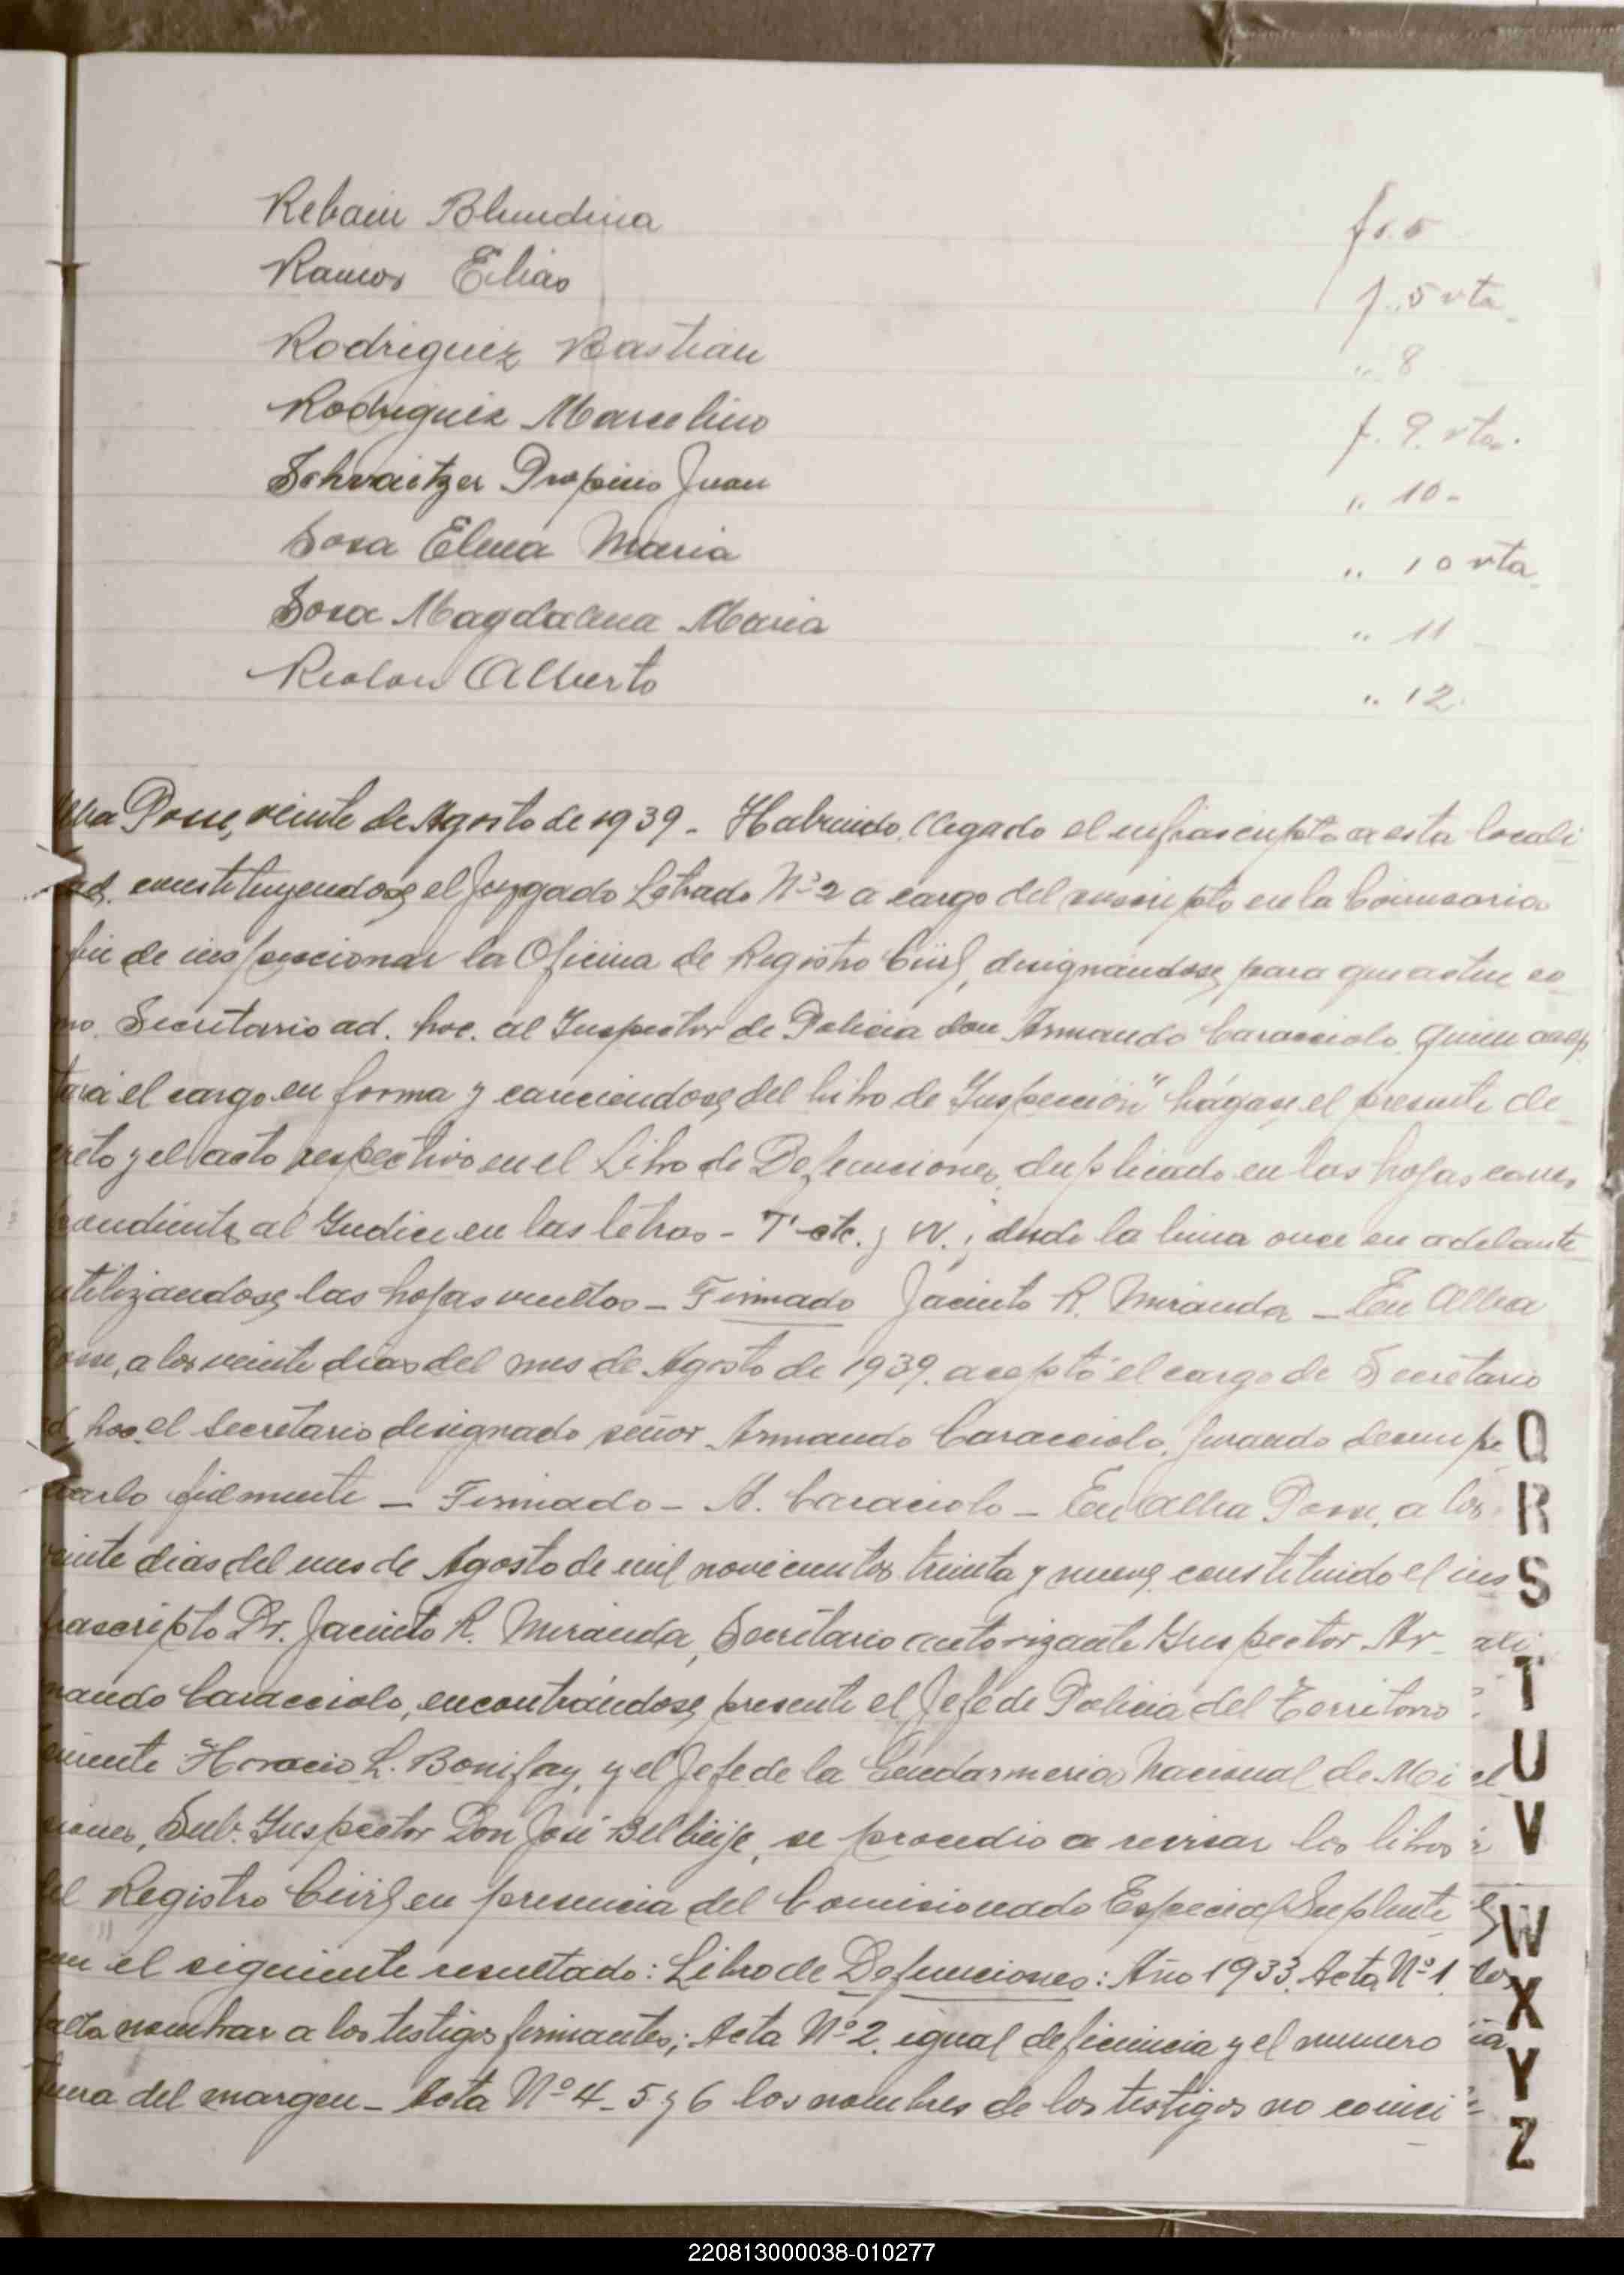 Rebain Blundina fs. 5
Ramos Elias f. 5 vta
Rodriguez Bastian " 8
Rodriguez Marcelino f. 9 vta.
Schvaitzer Propicio Juan " 10-
Sosa Elena Maria " 10 vta
Sosa Magdalena Maria " 11
Alberto " 12.
Alba Posse, veinte de Agosto de 1939 - Habiendo llegado el infrascripto a esta locali
dad, constituyendose el Juzgado Letrado Nº 2 a cargo del suscripto en la Comisaria
fin de inspeccionar la Oficina de Registro Civil, designandose, para que actue co
mo Secretario ad. hoc. al Inspector de Policia don Armando Caracciolo, quien acep
tará el cargo en forma y careciendose del libro de Inspección" hágase el presente de
creto y el acto respectivo en el Libro de Defunciones, duplicado en las hojas corres
pondiente al Indice en las letras - T etc. y W.; desde la linea once en adelante
utilizandose las hojas vueltas - Firmado Jacinto R. Miranda - En Alba
Posse, a los veinte dias del mes de Agosto de 1939, aceptó el cargo de Secretario
ad hoc. el Secretario designado señor Armando Caracciolo, jurando desempe
ñarlo fielmente - Firmado - A. Caraciolo - En Alba Posse, a los
veinte dias del mes de Agosto de mil novecientos treinta y nueve, constituido el ins
frascripto Dr. Jacinto R. Miranda, Secretario autorizante Inspector Ar-
mando Caracciolo, encontrándose presente el Jefe de Policia del Territorio
Horacio L. Bonifay, y el Jefe de la Gendarmeria Nacional de Mi
siones, Sub. Inspector Don José se procedio a revisar los libros
del Registro Civil en presencia del Comisionado Especial Suplente
con el siguiente resultado: Libro de Defunciones: Año 1933. Acta Nº 1.
falta nombrar a los testigos firmantes; Acta Nº 2. igual deficiencia y el numero
fuera del margen - Acta Nº 4 - 5 y 6 los nombres de los testigos no coinci
Q
R
S
T
U
V
W
X
Y
Z
220813000038-010277